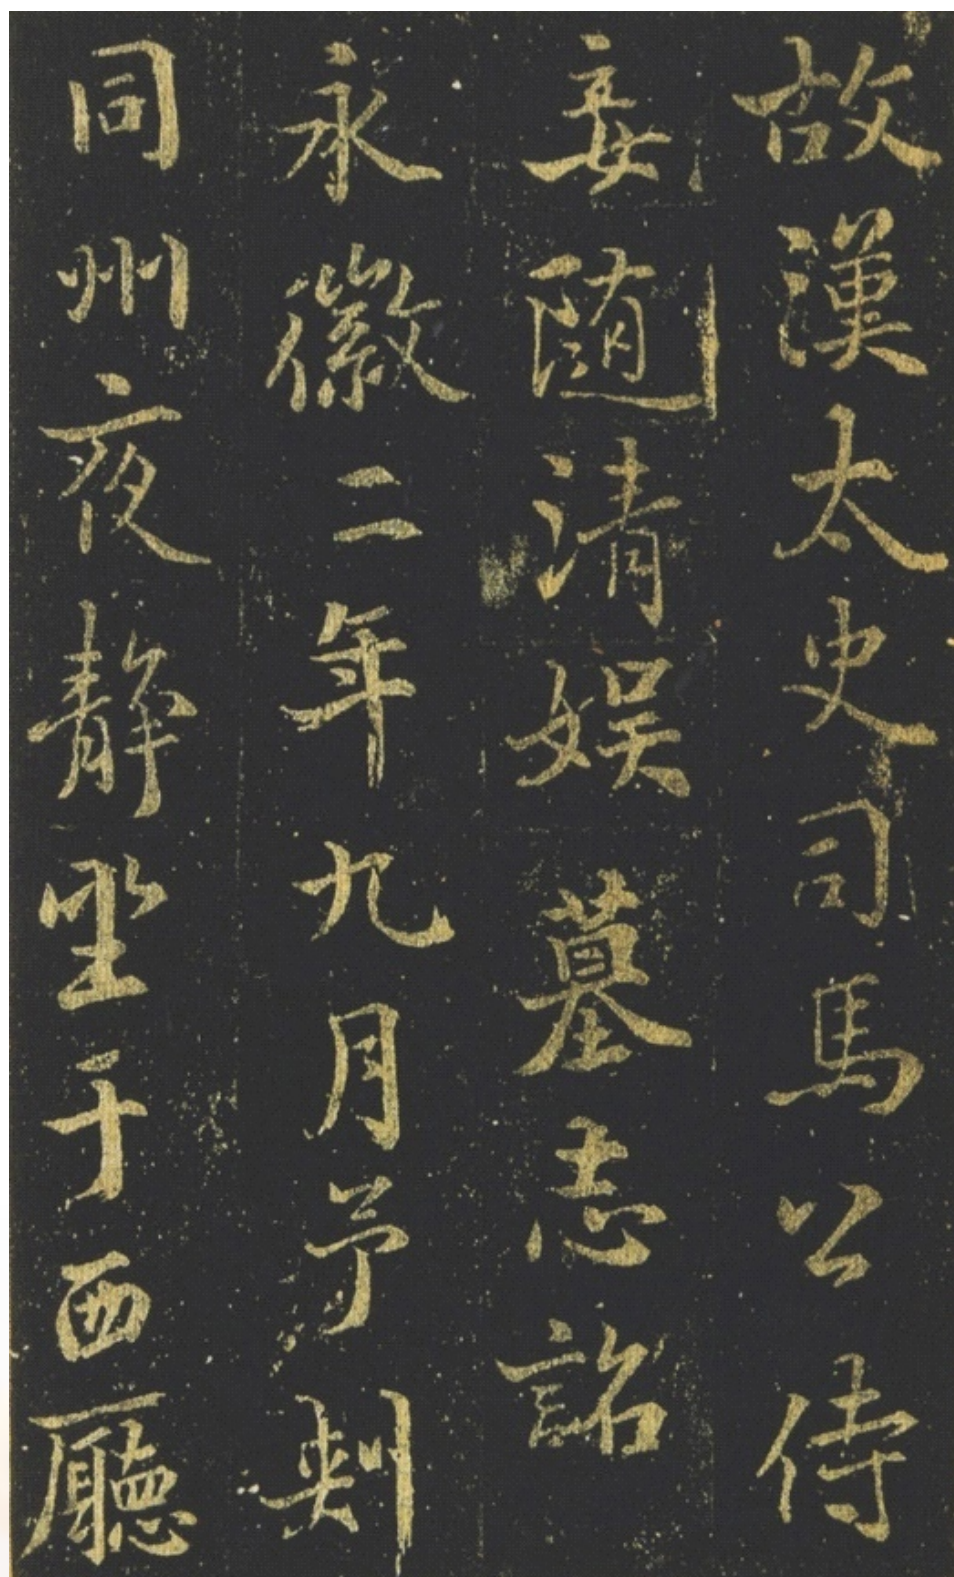 故漢太史司馬公侍
妾随清娱墓志詺
永徽二年九月予刾
同州夜静坐于西廳